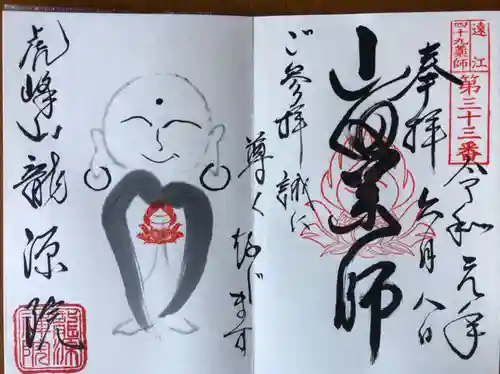 遠江
四十九薬師
第三十三番
奉拝
令和元年
六月八日
山田薬師
ご参拝誠に
尊くなじます
虎峰山龍源院
龍源